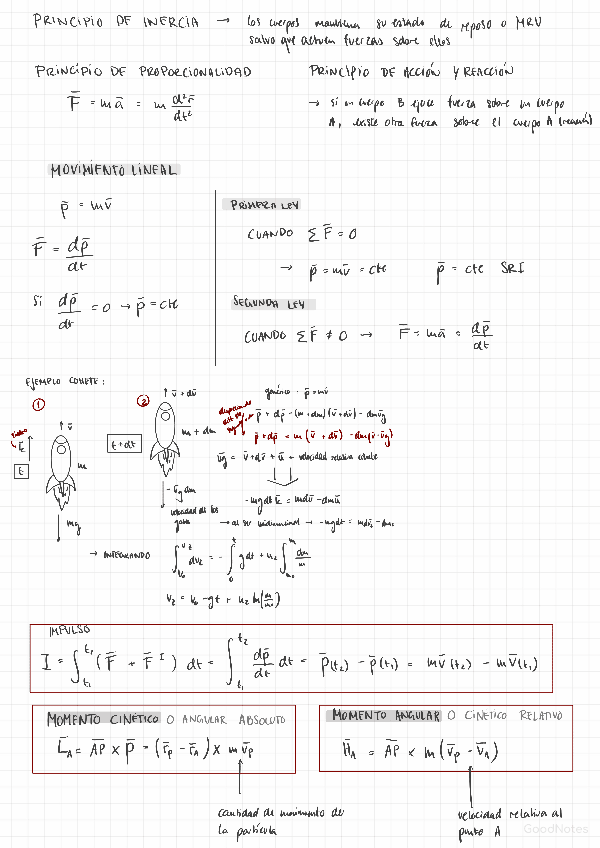 PRINCIPIO DE INERCIA → los cuerpos mantienen su estado de reposo o MRV
salvo que actuen fuerzas sobre ellos
PRINCIPIO DE PROPORCIONALIDAD
F̄ = mā = m d²r̄/dt²
PRINCIPIO DE ACCIÓN Y REACCIÓN
→ si un cuerpo B ejerce fuerza sobre un cuerpo
A, existe otra fuerza sobre el cuerpo A (reacción)
MOVIMIENTO LINEAL
p̄ = mv̄
F̄ = dp̄/dt
Si dp̄/dt = 0 → p̄ = cte
PRIMERA LEY
CUANDO Σ F̄ = 0
→ p̄ = mv̄ = cte p̄ = cte SRI
SEGUNDA LEY
CUANDO Σ F̄ ≠ 0 → F̄ = mā = dp̄/dt
EJEMPLO COHETE:
① ↑ v̄
t
m
mg
② ↑ v̄ + dv̄
t + dt
m + dm
- v̄g dm
velocidad de los
gases
genérico - p̄ = mv̄
p̄ + dp̄ = (m + dm)(v̄ + dv̄) - dm v̄g
p̄ + dp̄ = m(v̄ + dv̄) - dm(v̄ - v̄g)
v̄g = v̄ + dv̄ + ū → velocidad relativa cohete
- mg dt k̄ = m dv̄ - dm ū
→ al ser unidimensional →
→ INTEGRANDO
∫ dvz = - ∫ g dt + uz ∫ dm/m
vz = v0 - gt + uz ln(m/m0)
IMPULSO
I = ∫ t1 t2 (F̄ + F̄ I) dt = ∫ t1 t2 dp̄/dt dt = p̄(t2) - p̄(t1) = mv̄(t2) - mv̄(t1)
MOMENTO CINÉTICO O ANGULAR ABSOLUTO
L̄A = AP × p̄ = (r̄P - r̄A) × m v̄P
cantidad de movimiento de
la partícula
MOMENTO ANGULAR O CINÉTICO RELATIVO
H̄A = AP × m (v̄P - v̄A)
velocidad relativa al
punto A
GoodNotes